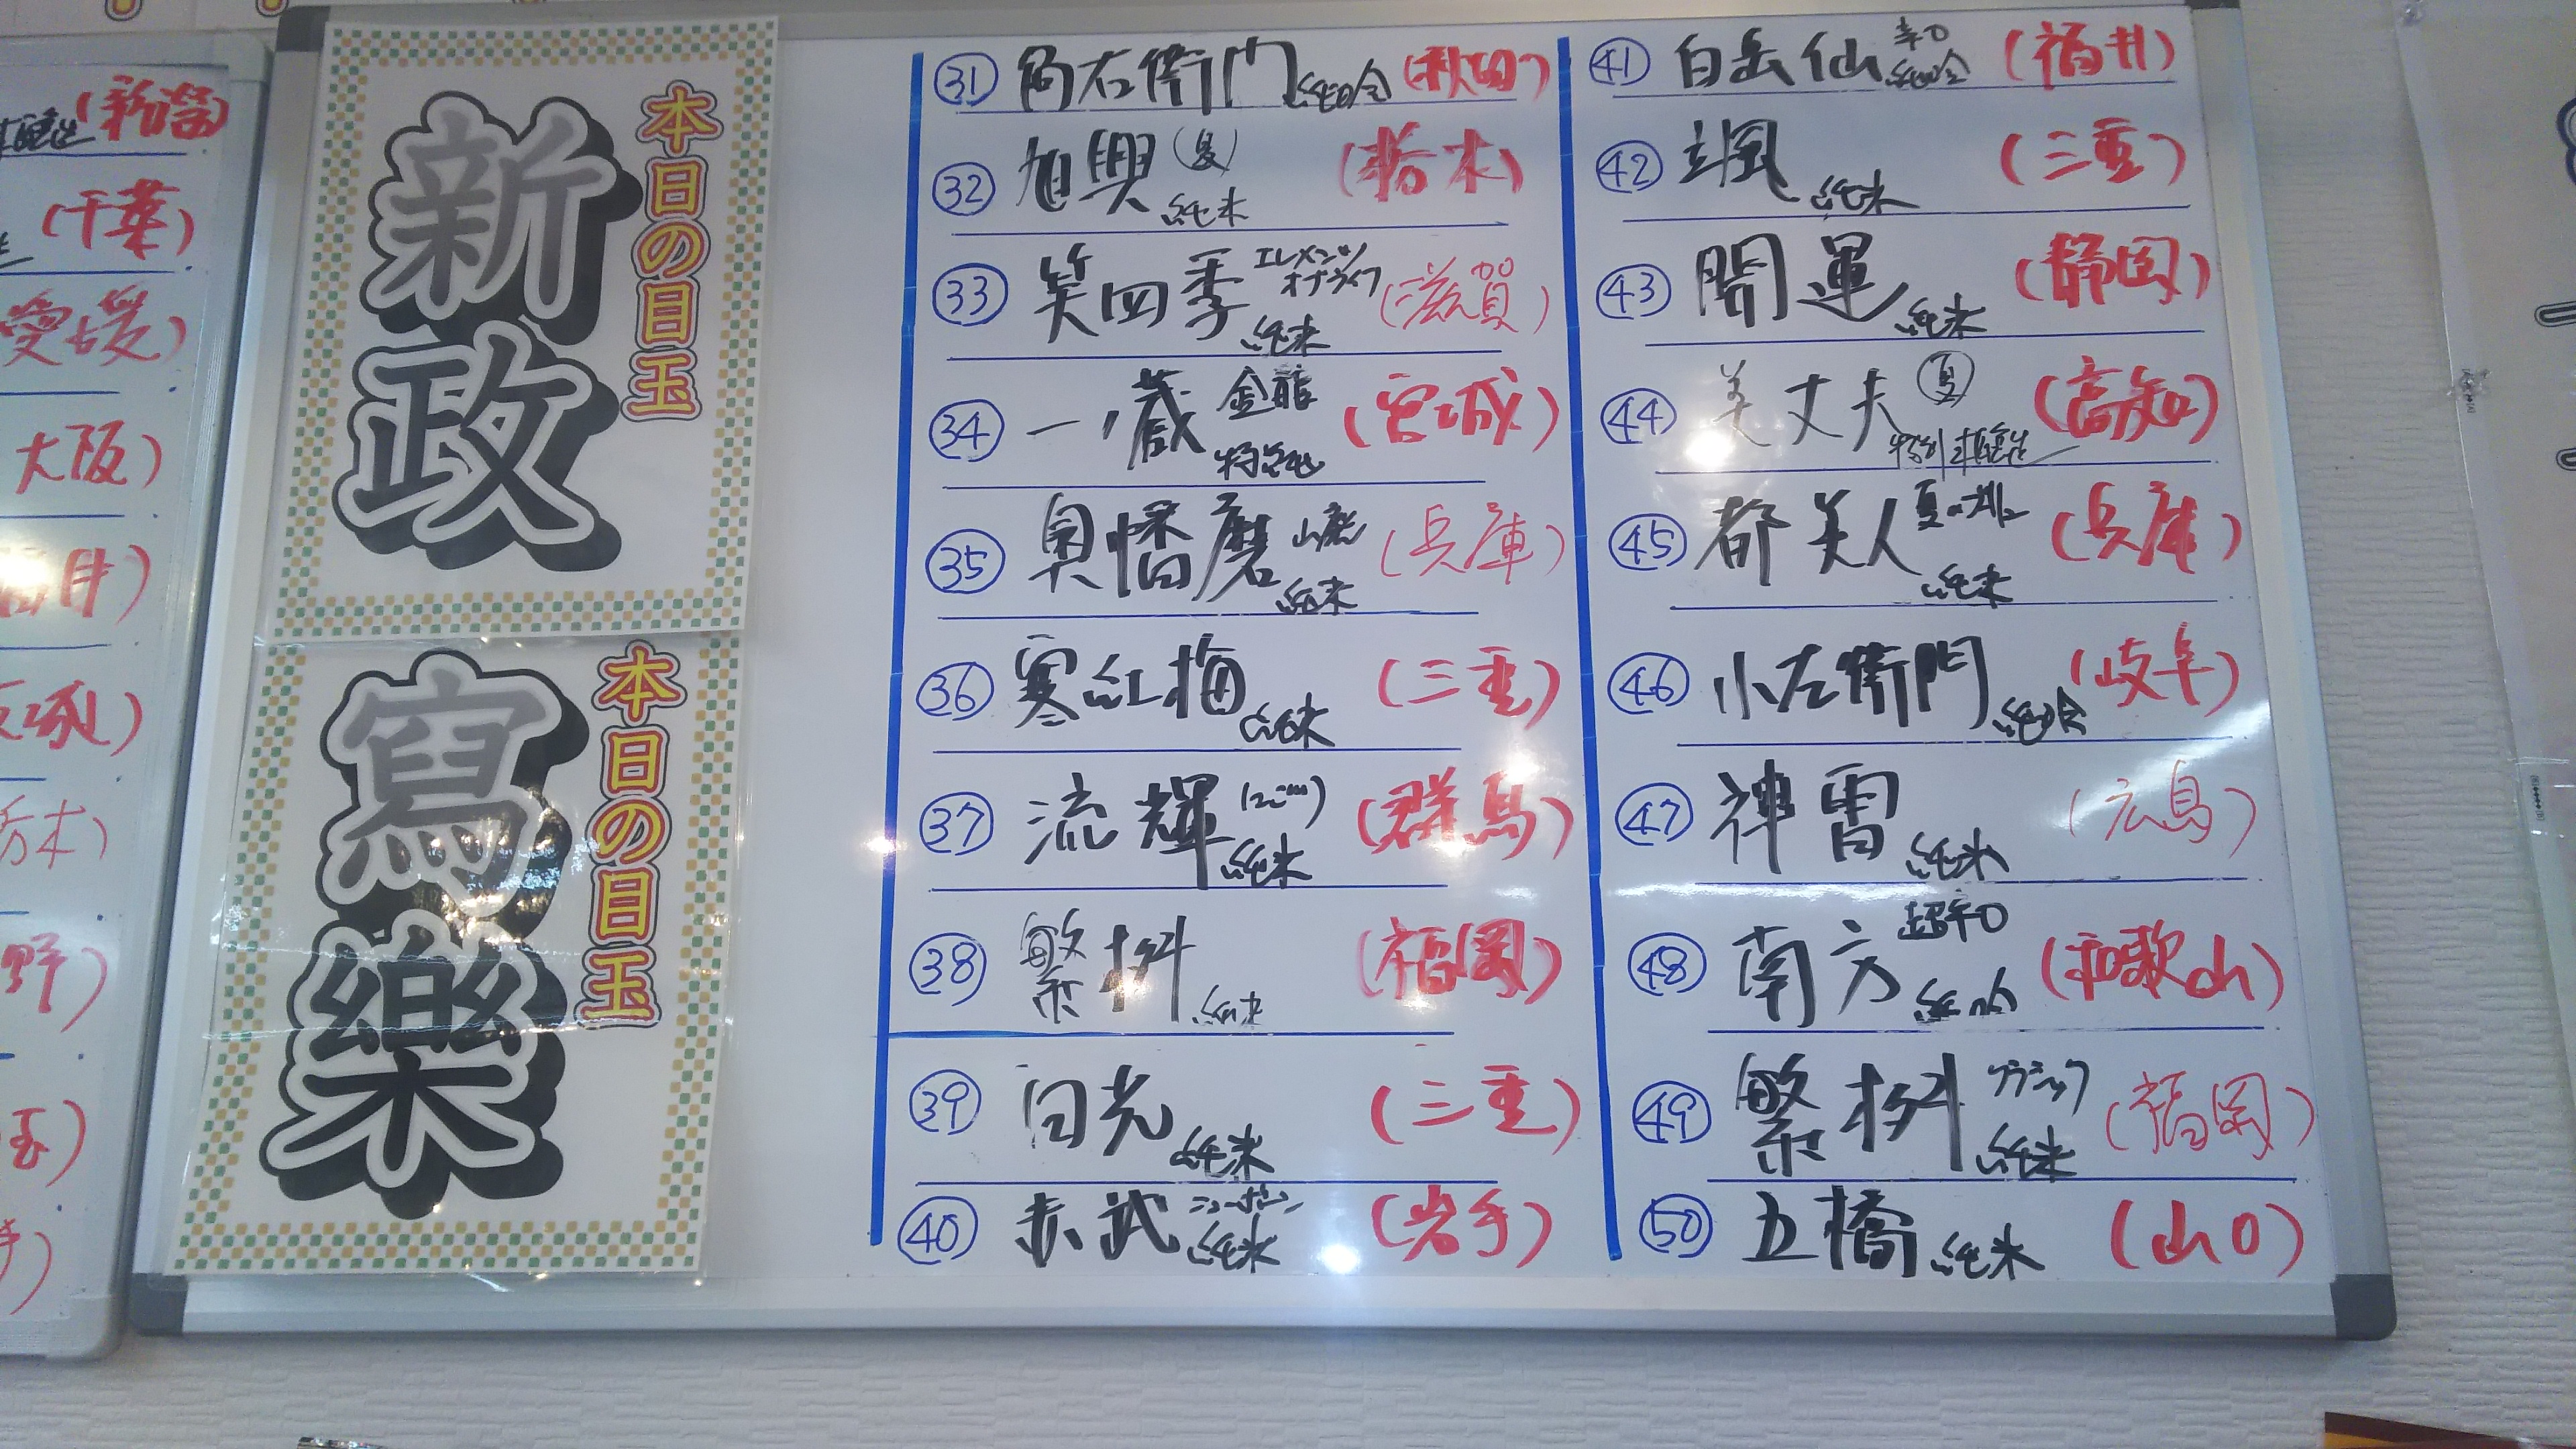 (新潟)
(千葉)
愛媛)
大阪)
福井)
栃木)
野)
玉)
手)
本日の目玉
新政
本日の目玉
寫樂
㉛ 角右衛門 純吟 (秋田)
㉜ 旭興 (夏) 純米 (栃木)
㉝ 笑四季 エレメンツオブライフ 純米 (滋賀)
㉞ 一ノ蔵 金龍 特純 (宮城)
㉟ 奥播磨 山廃 純米 (兵庫)
㊱ 寒紅梅 純米 (三重)
㊲ 流輝 純米 (群馬)
㊳ 繁桝 純米 (福岡)
㊴ 日光 純米 (三重)
㊵ 赤武 ニューボーン 純米 (岩手)
㊶ 白岳仙 辛口 純吟 (福井)
㊷ 颯 純米 (三重)
㊸ 開運 純米 (静岡)
㊹ 美丈夫 夏 特別本醸造 (高知)
㊺ 都美人 夏の 純米 (兵庫)
㊻ 小左衛門 純吟 (岐阜)
㊼ 神雷 純米 (広島)
㊽ 南方 超辛口 純吟 (和歌山)
㊾ 繁桝 クラシック 純米 (福岡)
㊿ 五橋 純米 (山口)